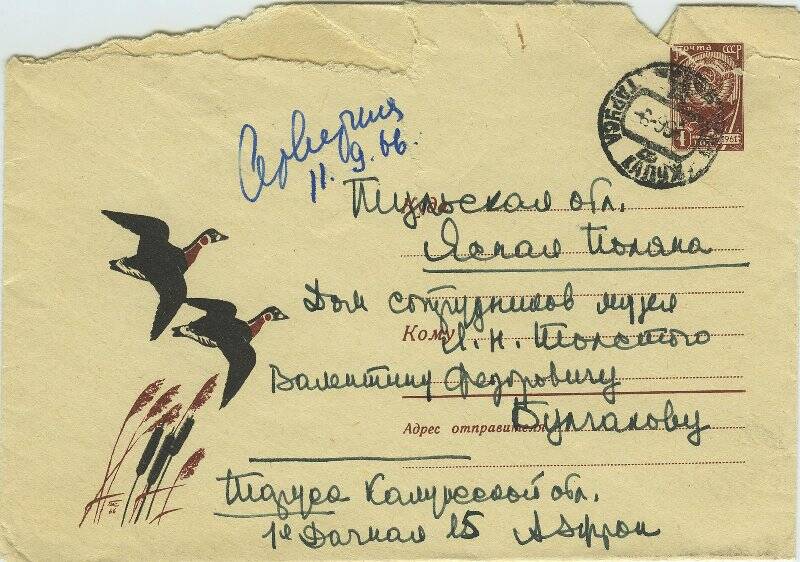 почта СССР
1961
ТАРУСА
Северния
11.9.66.
Куда
Тульская обл.
Ясная Поляна
Дом сотрудников музея
Кому
Л. Н. Толстого
Валентину Федоровичу
Булгакову
Адрес отправителя
Таруса Калужской обл.
1я Дачная 15 А Эфрон
66